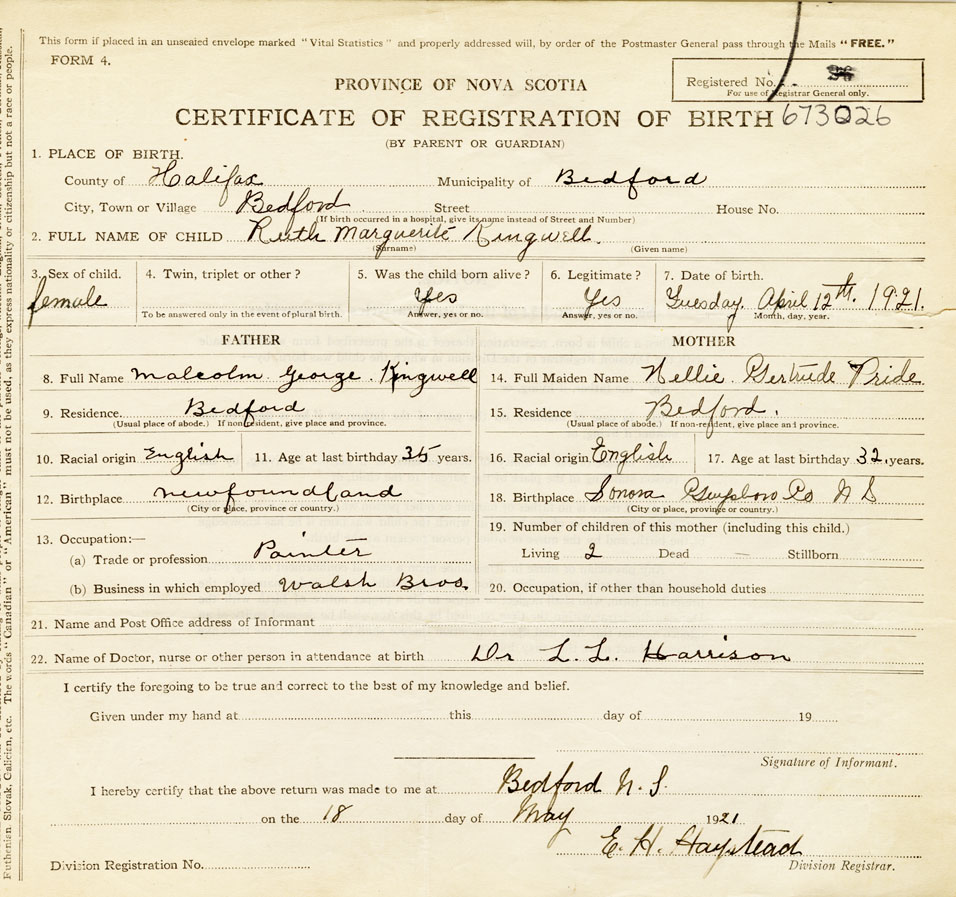 This form if placed in an unsealed envelope marked "Vital Statistics" and properly addressed will, by order of the Postmaster General pass through the Mails "FREE."
FORM 4.
PROVINCE OF NOVA SCOTIA
Registered No.
For use of Registrar General only.
CERTIFICATE OF REGISTRATION OF BIRTH 673026
(BY PARENT OR GUARDIAN)
1. PLACE OF BIRTH.
County of Halifax Municipality of Bedford
City, Town or Village Bedford Street House No.
(If birth occurred in a hospital, give its name instead of Street and Number)
2. FULL NAME OF CHILD Ruth Marguerite Kingwell.
(Surname) (Given name)
3. Sex of child. 4. Twin, triplet or other? 5. Was the child born alive? 6. Legitimate? 7. Date of birth.
female Yes Yes Tuesday April 12th. 1921.
To be answered only in the event of plural birth. Answer, yes or no. Answer, yes or no. Month, day, year.
FATHER MOTHER
8. Full Name Malcolm George Kingwell 14. Full Maiden Name Nellie Gertrude Pride
9. Residence. Bedford 15. Residence Bedford.
(Usual place of abode.) If non-resident, give place and province. (Usual place of abode.) If non-resident, give place and province.
10. Racial origin English 11. Age at last birthday 35 years. 16. Racial origin English 17. Age at last birthday 32 years.
12. Birthplace Newfoundland 18. Birthplace Sonora Guysboro Co N S
(City or place, province or country.) (City or place, province or country.)
13. Occupation:— 19. Number of children of this mother (including this child.)
(a) Trade or profession Painter Living 2 Dead — Stillborn
(b) Business in which employed Walsh Bros. 20. Occupation, if other than household duties
21. Name and Post Office address of Informant
22. Name of Doctor, nurse or other person in attendance at birth Dr L. L. Harrison
I certify the foregoing to be true and correct to the best of my knowledge and belief.
Given under my hand at this day of 19
Signature of Informant.
I hereby certify that the above return was made to me at Bedford N. S.
on the 18 day of May 1921
E. H. Haystead
Division Registration No. Division Registrar.
Slovak, Galician, etc. The words "Canadian" or "American" must not be used, as they express nationality or citizenship but not a race or people.